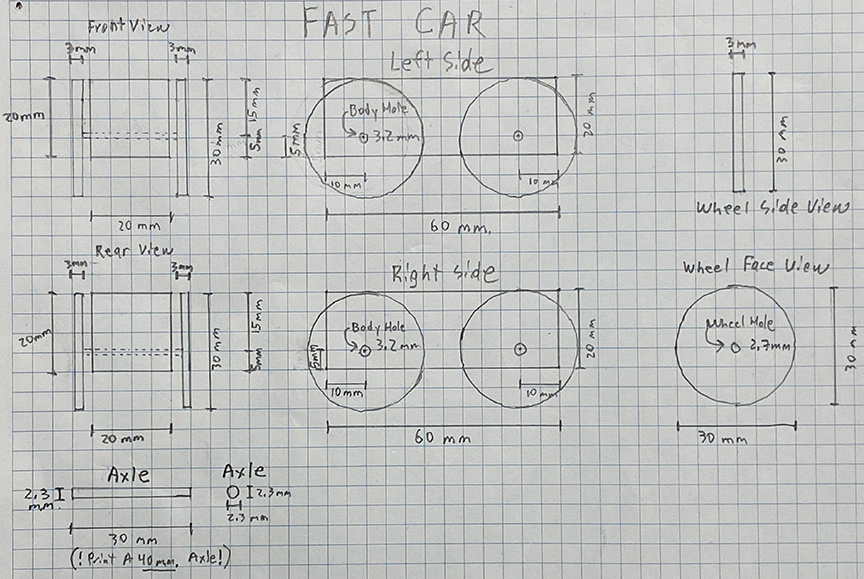 FAST CAR
Front View
3mm
3mm
20mm
30mm
15mm
5mm
20 mm
Left Side
Body Hole
3.2mm
5mm
10 mm
10 mm
20 mm
60 mm.
3mm
30mm
Wheel Side View
Rear View
3mm
3mm
20mm
30mm
15mm
5mm
20 mm
Right Side
Body Hole
3.2mm
5mm
10 mm
10 mm
20 mm
60 mm
Wheel Face View
Wheel Hole
2.7mm
30 mm
30 mm
Axle
2.3
mm.
30 mm
(!Print A 40mm. Axle!)
Axle
2.3mm
2.3mm